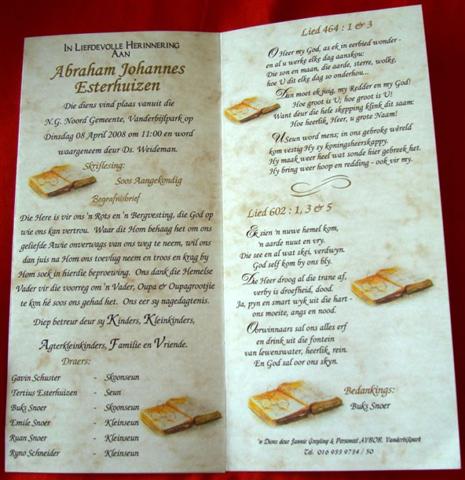 In Liefdevolle Herinnering
Aan
Abraham Johannes
Esterhuizen
Die diens vind plaas vanuit die
N.G. Noord Gemeente, Vanderbijlpark op
Dinsdag 08 April 2008 om 11:00 en word
waargeneem deur Ds. Weideman.
Skriflesing:
Soos Aangekondig
Begrafnisbrief
Die Here is vir ons 'n Rots en 'n Bergvesting, die God op
wie ons kan vertrou. Waar dit Hom behaag het om ons
geliefde Awie onverwags van ons weg te neem, wil ons
dan juis na Hom ons toevlug neem en troos en krag by
Hom soek in hierdie beproewing. Ons dank die Hemelse
Vader vir die voorreg om 'n Vader, Oupa & Oupagrootjie
te kon hê soos ons gehad het. Ons eer sy nagedagtenis.
Diep betreur deur sy Kinders, Kleinkinders,
Agterkleinkinders, Familie en Vriende.
Draers:
Gavin Schuster - Skoonseun
Tertius Esterhuizen - Seun
Buks Snoer - Skoonseun
Emile Snoer - Kleinseun
Ruan Snoer - Kleinseun
Ryno Schneider - Kleinseun
Lied 464 : 1 & 3
O Heer my God, as ek in eerbied wonder -
en al u werke elke dag aanskou:
Die son en maan, die aarde, sterre, wolke,
hoe U dit elke dag so onderhou...
Dan moet ek jung, my Redder en my God!
Hoe groot is U; hoe groot is U!
Want deur die hele skepping klink dit saam:
Hoe heerlik, Heer, u grote Naam!
U Seun word mens; in ons gebroke wêreld
kom vestig Hy sy koningsheerskappy.
Hy maak weer heel wat sonde hier gebreek het.
Hy bring weer hoop en redding - ook vir my.
Lied 602 : 1, 3 & 5
Ek sien 'n nuwe hemel kom,
'n aarde nuut en vry.
Die see en al wat skei, verdwyn.
God self kom by ons bly.
Die Heer droog al die trane af,
verby is droefheid, dood.
Ja, pyn en smart wyk uit die hart -
ons moeite, angs en nood.
Oorwinnaars sal ons alles erf
en drink uit die fontein
van lewenswater, heerlik, rein.
En God sal oor ons skyn.
Bedankings:
Buks Snoer
'n Diens deur Jannie Greyling & Personeel AVBOB, Vanderbijlpark
Tel. 016 933 9734 / 50